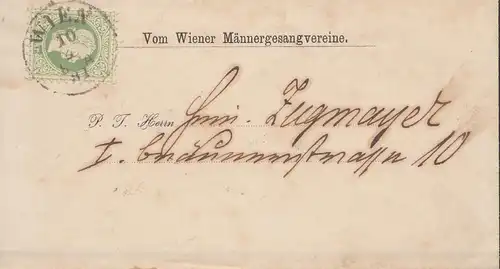 WIEN
10
81
Vom Wiener Männergesangvereine.
P. T. Herrn Zugmayer
I. Bräunerstrasse 10